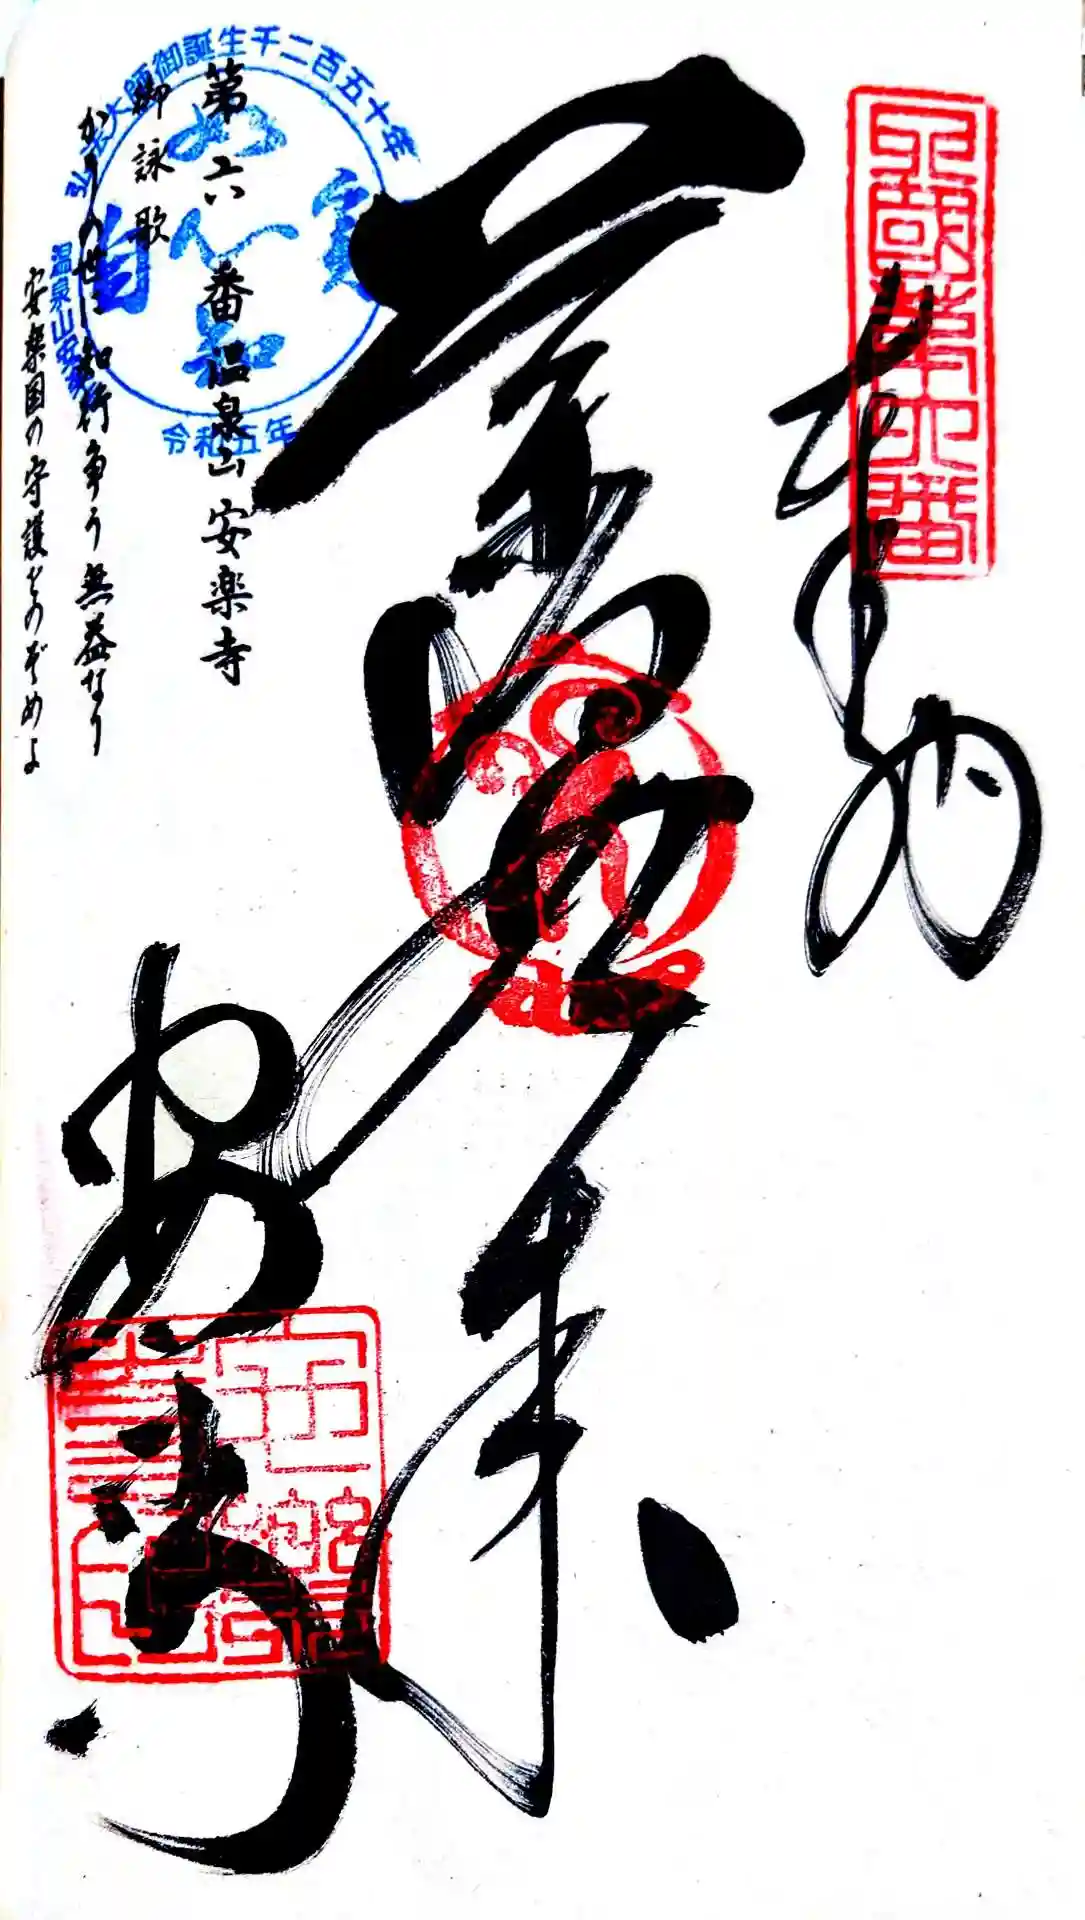 四國第六番
奉納
薬師如来
安楽寺
第六番温泉山安楽寺
御詠歌
かりの世に知行争う無益なり
安楽国の守護をのぞめよ
弘法大師御誕生千二百五十年
如實知自心
温泉山安楽寺
令和五年